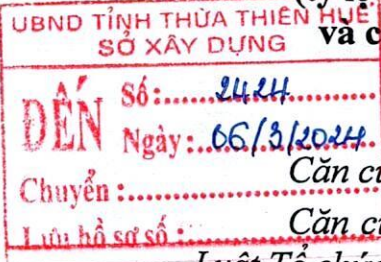 UBND TỈNH THỪA THIÊN HUẾ
SỞ XÂY DỰNG
và c
ĐẾN
Số:.....2424.....
Ngày:..06/3/2024
Chuyển:.....
Căn cứ
Lưu hồ sơ số:.....
Căn cứ
Luật Tổ chức